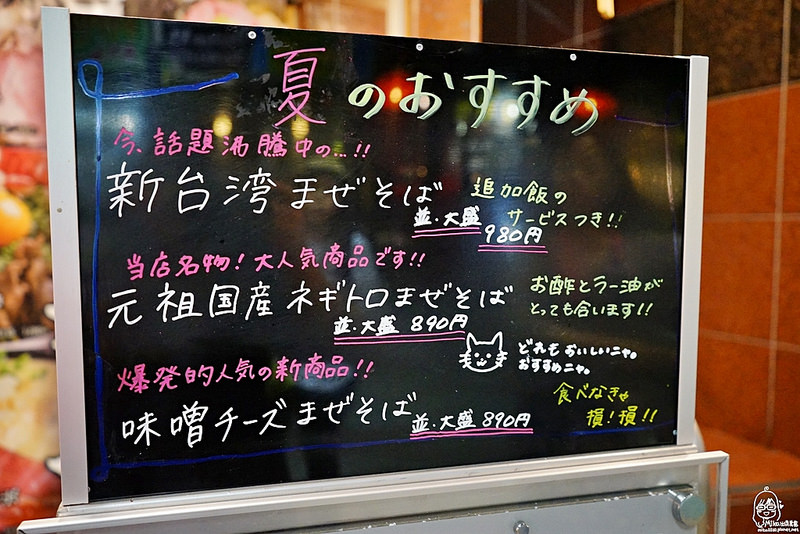 夏のおすすめ
今、話題沸騰中の…!!
新台湾まぜそば
追加飯の
サービスつき!!
並・大盛
980円
当店名物!大人気商品です!!
元祖国産ネギトロまぜそば
並・大盛 890円
お酢とラー油が
とっても合います!!
どれもおいしいニャ。
おすすめニャ。
爆発的人気の新商品!!
味噌チーズまぜそば
並・大盛 890円
食べなきゃ
損!損!!